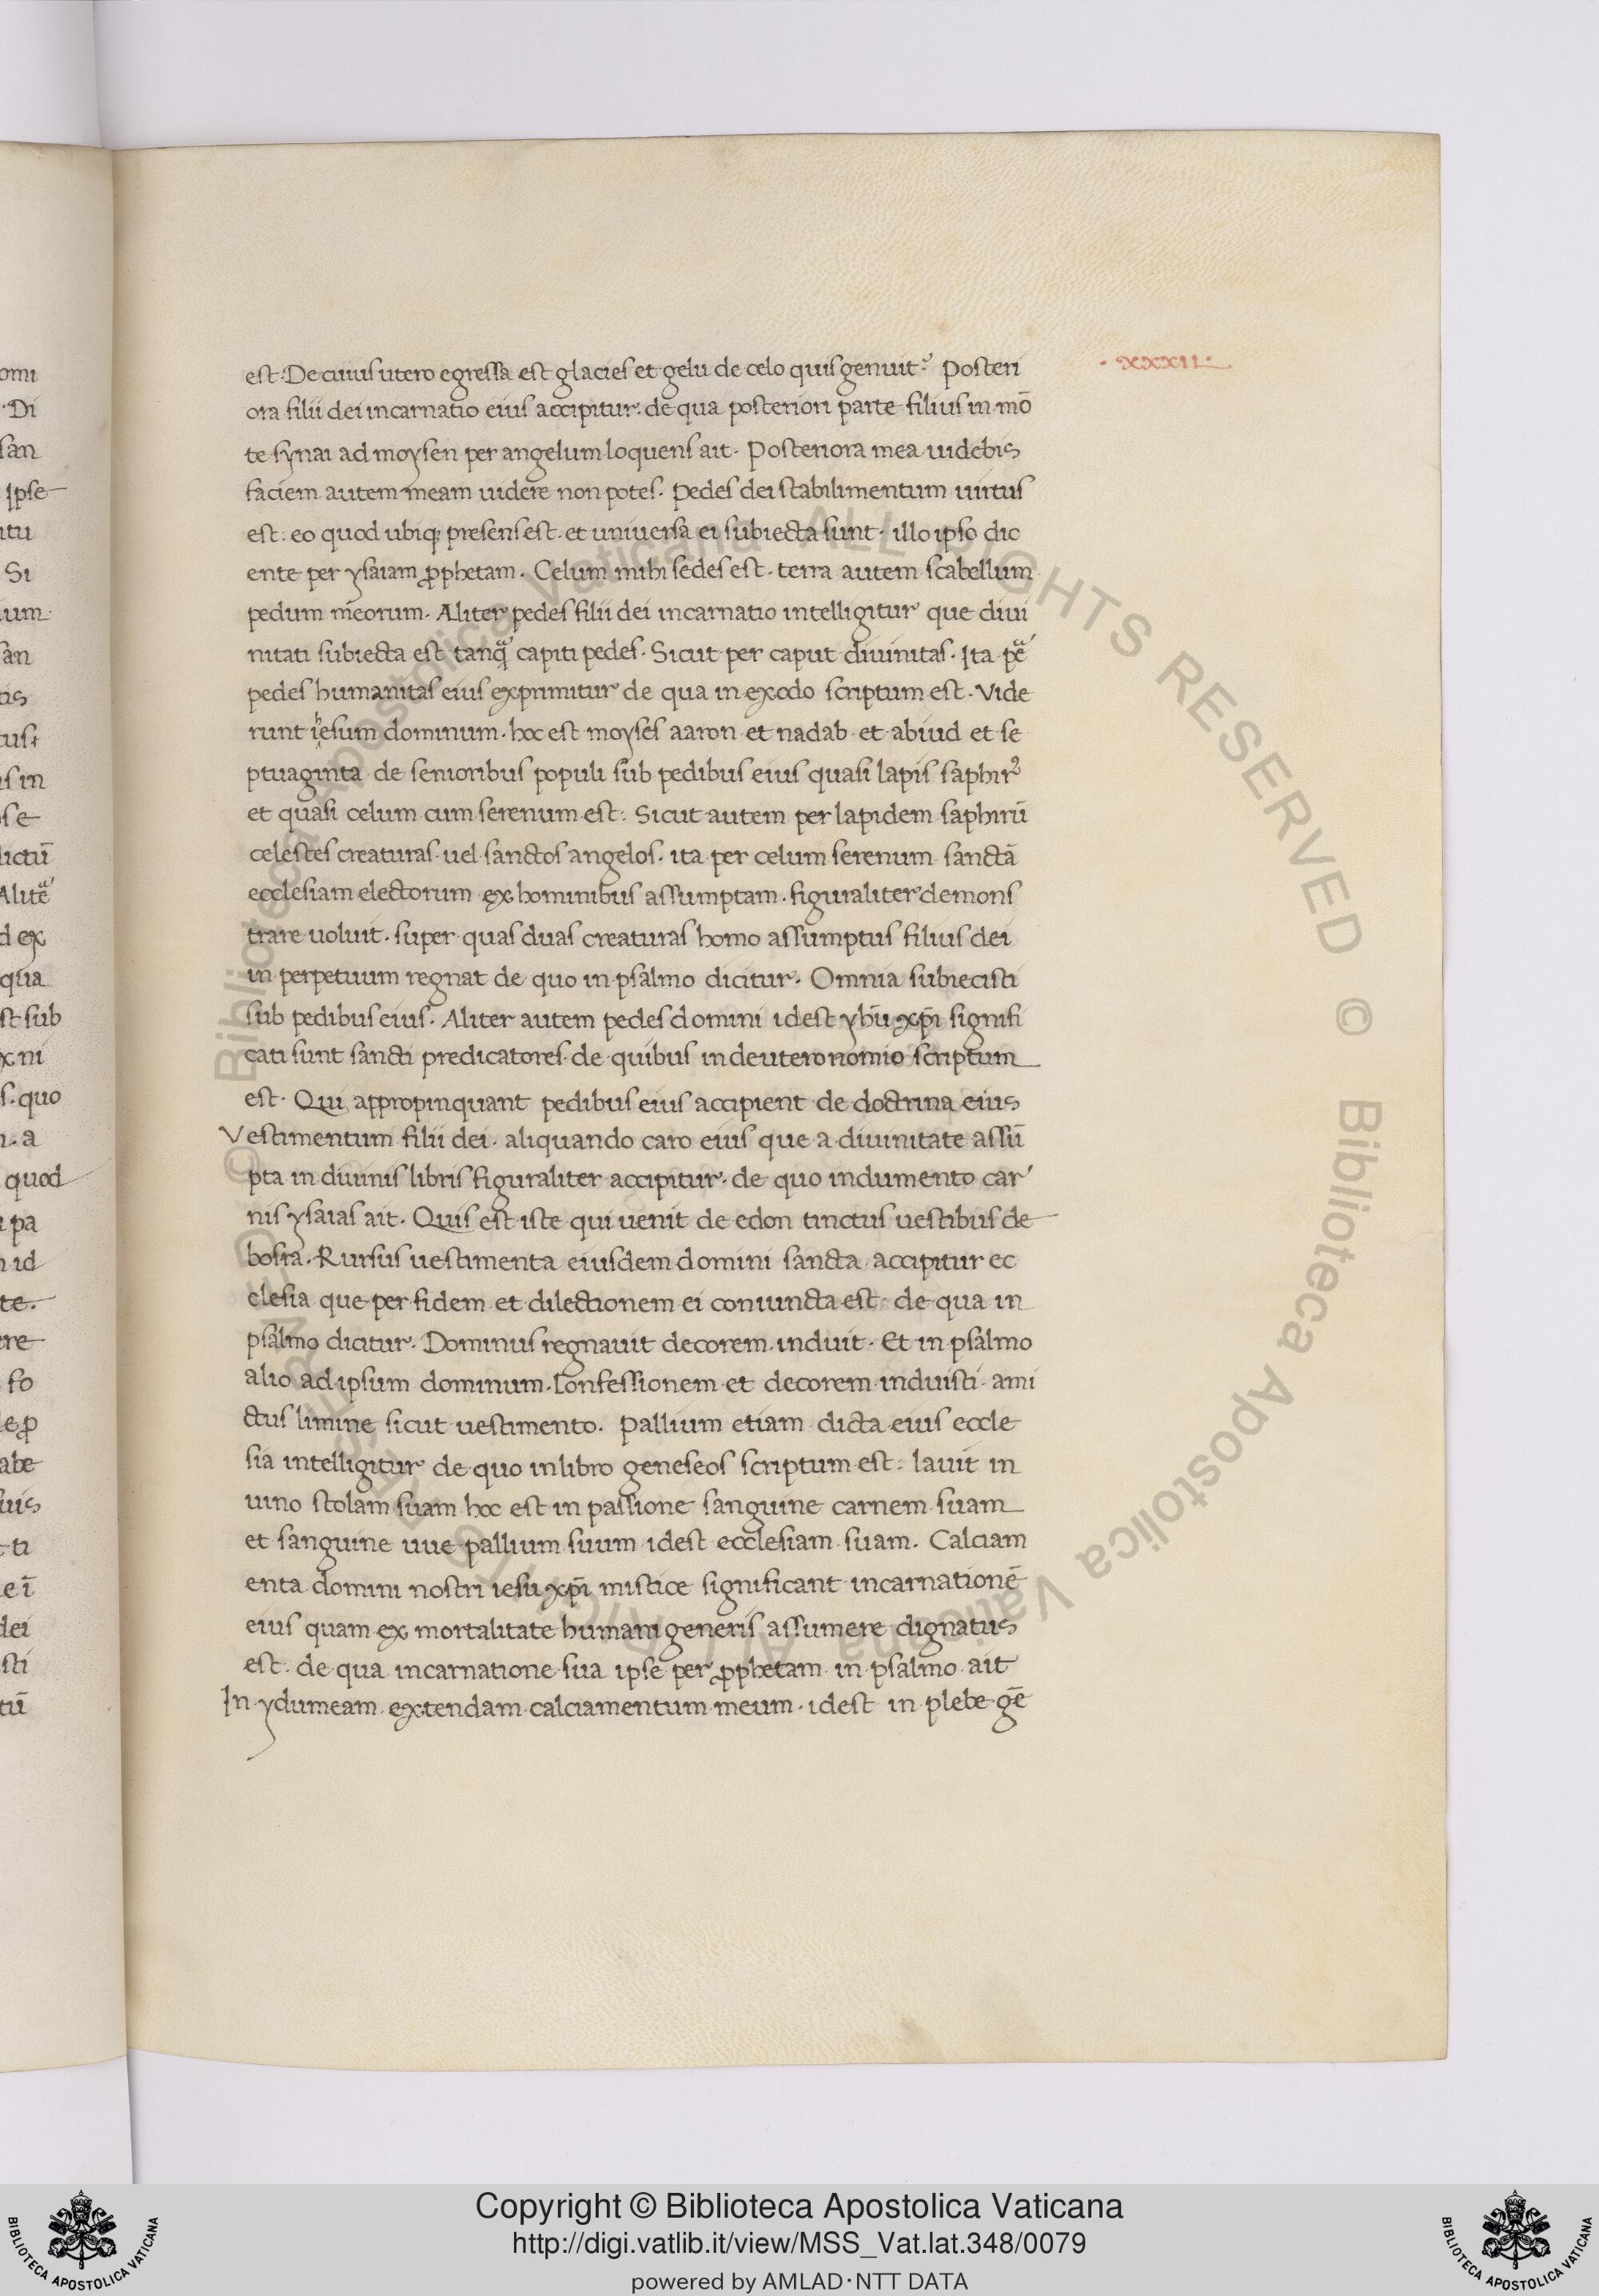 ·xxxii·
est. De cuius utero egressa est glacies et gelu de celo quis genuit? Posteri
ora filii dei incarnatio eius accipitur. de qua posteriori parte filius in mō
te sẏnai ad moẏsen per angelum loquens ait. Posteriora mea uidebis
faciem autem meam uidere non potes. Pedes dei stabilimentum uirtus
est: eo quod ubiq; presens est. et uniuersa ei subiecta sunt. illo ipso dic
ente per ẏsaiam ꝓphetam. Celum mihi sedes est. terra autem scabellum
pedum meorum. Aliter pedes filii dei incarnatio intelligitur que diui
nitati subiecta est tanꝗ̃ capiti pedes. Sicut per caput diuinitas. Ita ꝑ
pedes humanitas eius exprimitur de qua in exodo scriptum est. Vide
runt ihesum dominum. hoc est moẏses aaron et nadab et abiud et se
ptuaginta de senioribus populi sub pedibus eius quasi lapis saphirꝰ
et quasi celum cum serenum est. Sicut autem per lapidem saphirū
celestes creaturas uel sanctos angelos. ita per celum serenum sanctā
ecclesiam electorum ex hominibus assumptam. figuraliter demons
trare uoluit. super quas duas creaturas homo assumptus filius dei
in perpetuum regnat de quo in psalmo dicitur. Omnia subiecisti
sub pedibus eius. Aliter autem pedes domini idest yhū xp̄i signifi
cati sunt sancti predicatores. de quibus in deuteronomio scriptum
est. Qui appropinquant pedibus eius accipient de doctrina eius
Vestimentum filii dei. aliquando caro eius que a diuinitate assū
pta in diuinis libris figuraliter accipitur. de quo indumento car
nis ẏsaias ait. Quis est iste qui uenit de edon tinctus uestibus de
bosra. Rursus uestimenta eiusdem domini sancta accipitur ec
clesia que per fidem et dilectionem ei coniuncta est. de qua in
psalmo dicitur. Dominus regnauit decorem induit. Et in psalmo
alio ad ipsum dominum. Confessionem et decorem induisti. ami
ctus limine sicut uestimento. Pallium etiam dicta eius eccle
sia intelligitur de quo in libro geneseos scriptum est. lauit in
uino stolam suam hoc est in passione sanguine carnem suam
et sanguine uue pallium suum idest ecclesiam suam. Calciam
enta domini nostri iesu xp̄i mistice significant incarnationē
eius quam ex mortalitate humani generis assumere dignatus
est. de qua incarnatione sua ipse per ꝓphetam in psalmo ait
In ẏdumeam extendam calciamentum meum. idest in plebe gē
Copyright © Biblioteca Apostolica Vaticana
http://digi.vatlib.it/view/MSS_Vat.lat.348/0079
powered by AMLAD·NTT DATA